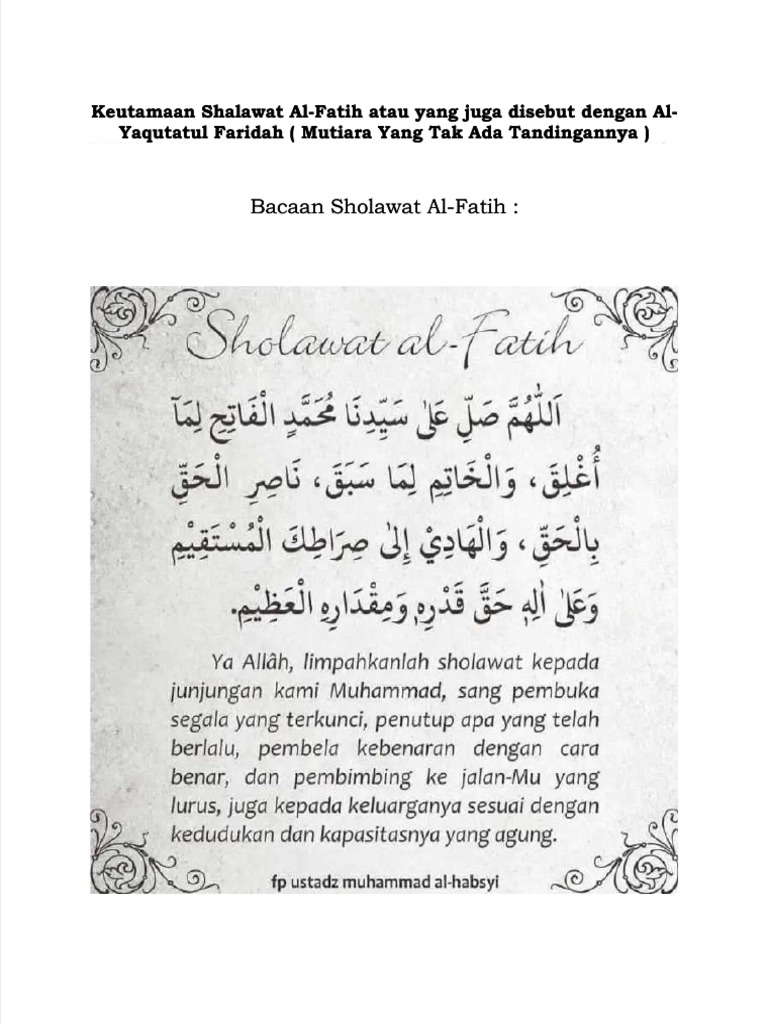 Keutamaan Shalawat Al-Fatih atau yang juga disebut dengan Al-
Yaqutatul Faridah ( Mutiara Yang Tak Ada Tandingannya )
Bacaan Sholawat Al-Fatih :
Sholawat al-Fatih
اَللّٰهُمَّ صَلِّ عَلىٰ سَيِّدِنَا مُحَمَّدٍ الْفَاتِحِ لِمَآ
أُغْلِقَ، وَالْخَاتِمِ لِمَا سَبَقَ، نَاصِرِ الْحَقِّ
بِالْحَقِّ، وَالْهَادِيْ إِلىٰ صِرَاطِكَ الْمُسْتَقِيْمِ
وَعَلىٰ اٰلِهٖ حَقَّ قَدْرِهٖ وَمِقْدَارِهِ الْعَظِيْمِ.
Ya Allâh, limpahkanlah sholawat kepada
junjungan kami Muhammad, sang pembuka
segala yang terkunci, penutup apa yang telah
berlalu, pembela kebenaran dengan cara
benar, dan pembimbing ke jalan-Mu yang
lurus, juga kepada keluarganya sesuai dengan
kedudukan dan kapasitasnya yang agung.
fp ustadz muhammad al-habsyi